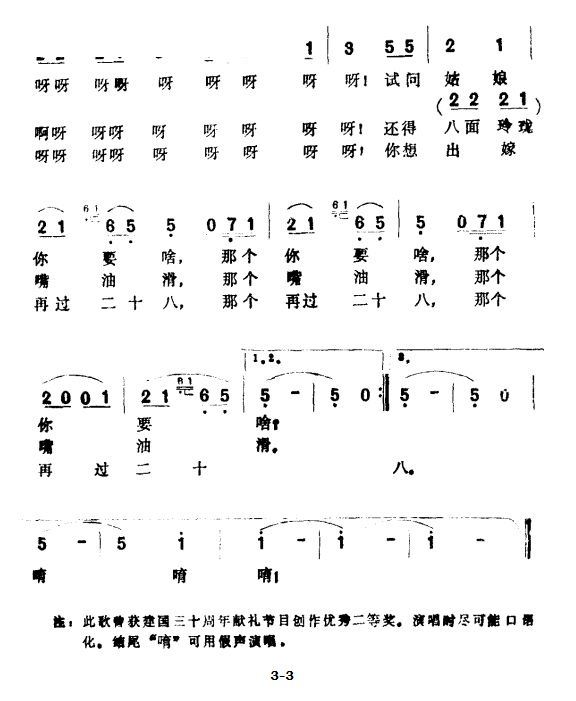 1 | 3 5 5 | 2 1
呀呀 呀呀 呀 呀 呀 呀 呀 呀! 试问 姑 娘
(2 2 2 1)
啊呀 呀呀 呀 呀 呀 呀 呀! 还得 八面 玲珑
呀呀 呀呀 呀 呀 呀 呀 呀! 你想 出 嫁
2 1 61 6 5 | 5 0 7 1 | 2 1 61 6 5 | 5 0 7 1
你 要 啥, 那个 你 要 啥, 那个
嘴 油 滑, 那个 嘴 油 滑, 那个
再过 二十 八, 那个 再过 二十 八, 那个
1.2. 3.
2 0 0 1 | 2 1 61 6 5 | 5 - | 5 0 :| 5 - | 5 0
你 要 啥!
嘴 油 滑。
再 过 二 十 八。
5 - | 5 i | i - | i - | i
唷 唷 唷!
注: 此歌曾获建国三十周年献礼节目创作优秀二等奖。演唱时尽可能口语
化。结尾“唷”可用假声演唱。
3-3